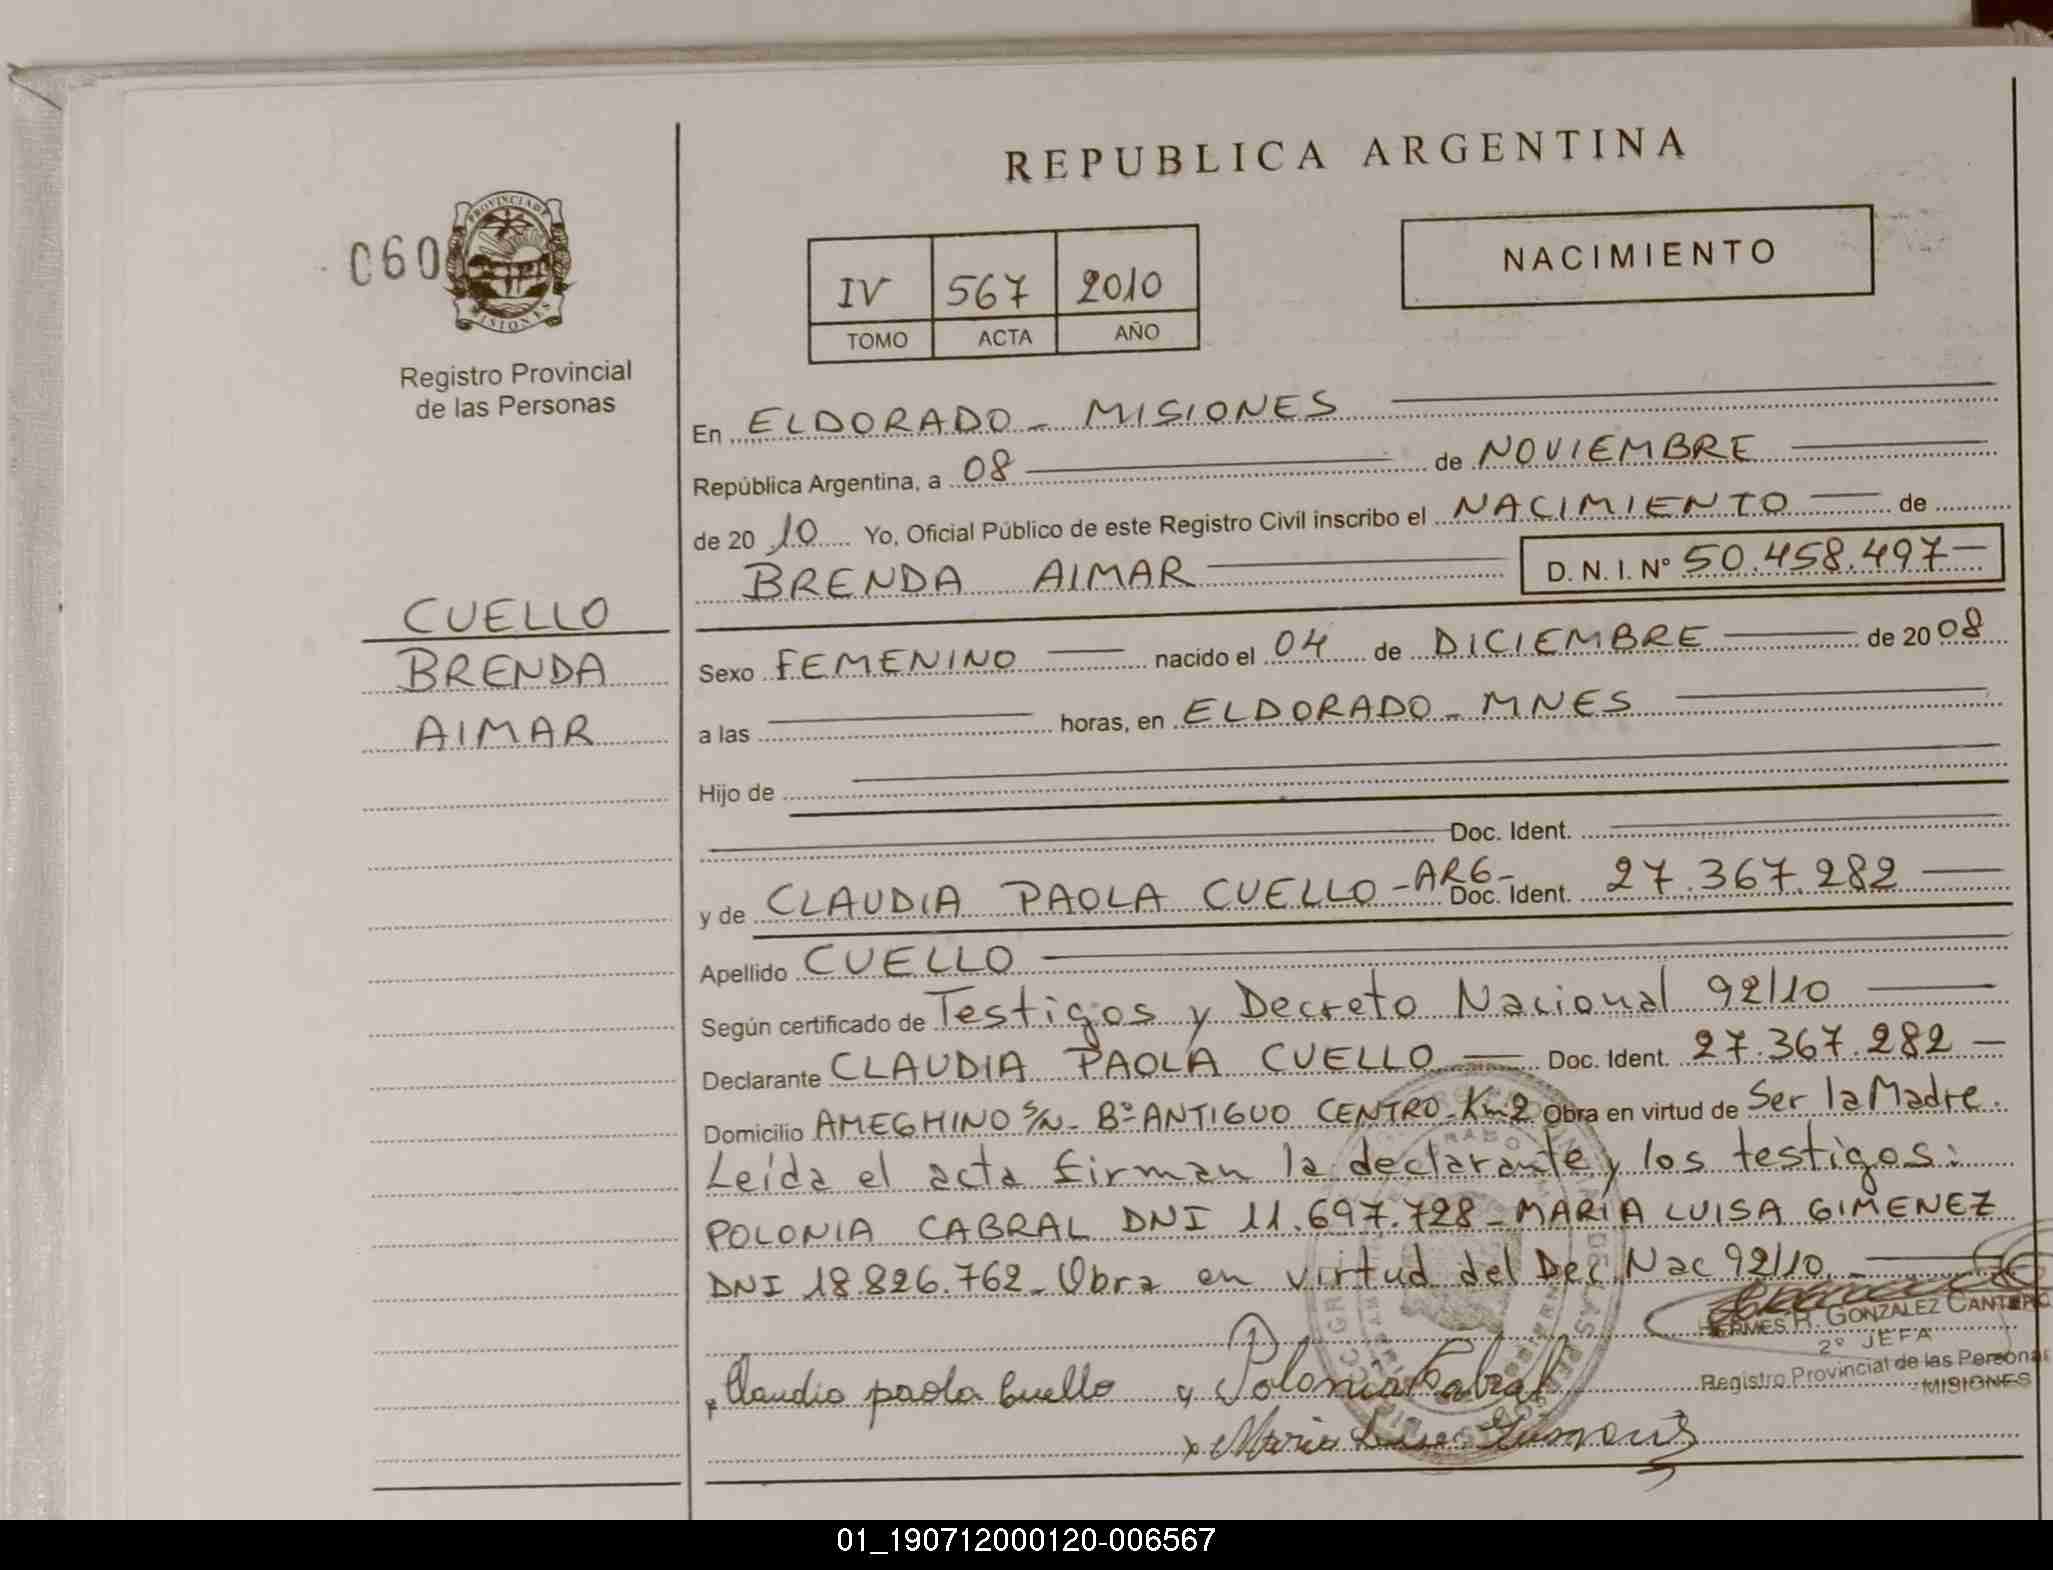 REPUBLICA ARGENTINA
060
PROVINCIA DE
MISIONES
Registro Provincial
de las Personas
IV 567 2010
TOMO ACTA AÑO
NACIMIENTO
CUELLO
BRENDA
AIMAR
En ELDORADO - MISIONES
República Argentina, a 08 de NOVIEMBRE
de 2010 Yo, Oficial Público de este Registro Civil inscribo el NACIMIENTO de
BRENDA AIMAR D. N. I. N° 50.458.497
Sexo FEMENINO nacido el 04 de DICIEMBRE de 2008
a las horas, en ELDORADO - MNES
Hijo de
Doc. Ident.
y de CLAUDIA PAOLA CUELLO - ARG - Doc. Ident. 27.367.282
Apellido CUELLO
Según certificado de Testigos y Decreto Nacional 92/10
Declarante CLAUDIA PAOLA CUELLO Doc. Ident. 27.367.282
Domicilio AMEGHINO S/N - B° ANTIGUO CENTRO - Km 2 Obra en virtud de Ser la Madre.
Leída el acta firman la declarante y los testigos:
POLONIA CABRAL DNI 11.697.728 - MARIA LUISA GIMENEZ
DNI 18.826.762 - Obra en virtud del Dec. Nac 92/10
HERMES R. GONZALEZ CANTERO
2° JEFA
Registro Provincial de las Personas
MISIONES
Claudia paola Cuello Polonia Cabral
Maria Luisa Gimenez
01_190712000120-006567